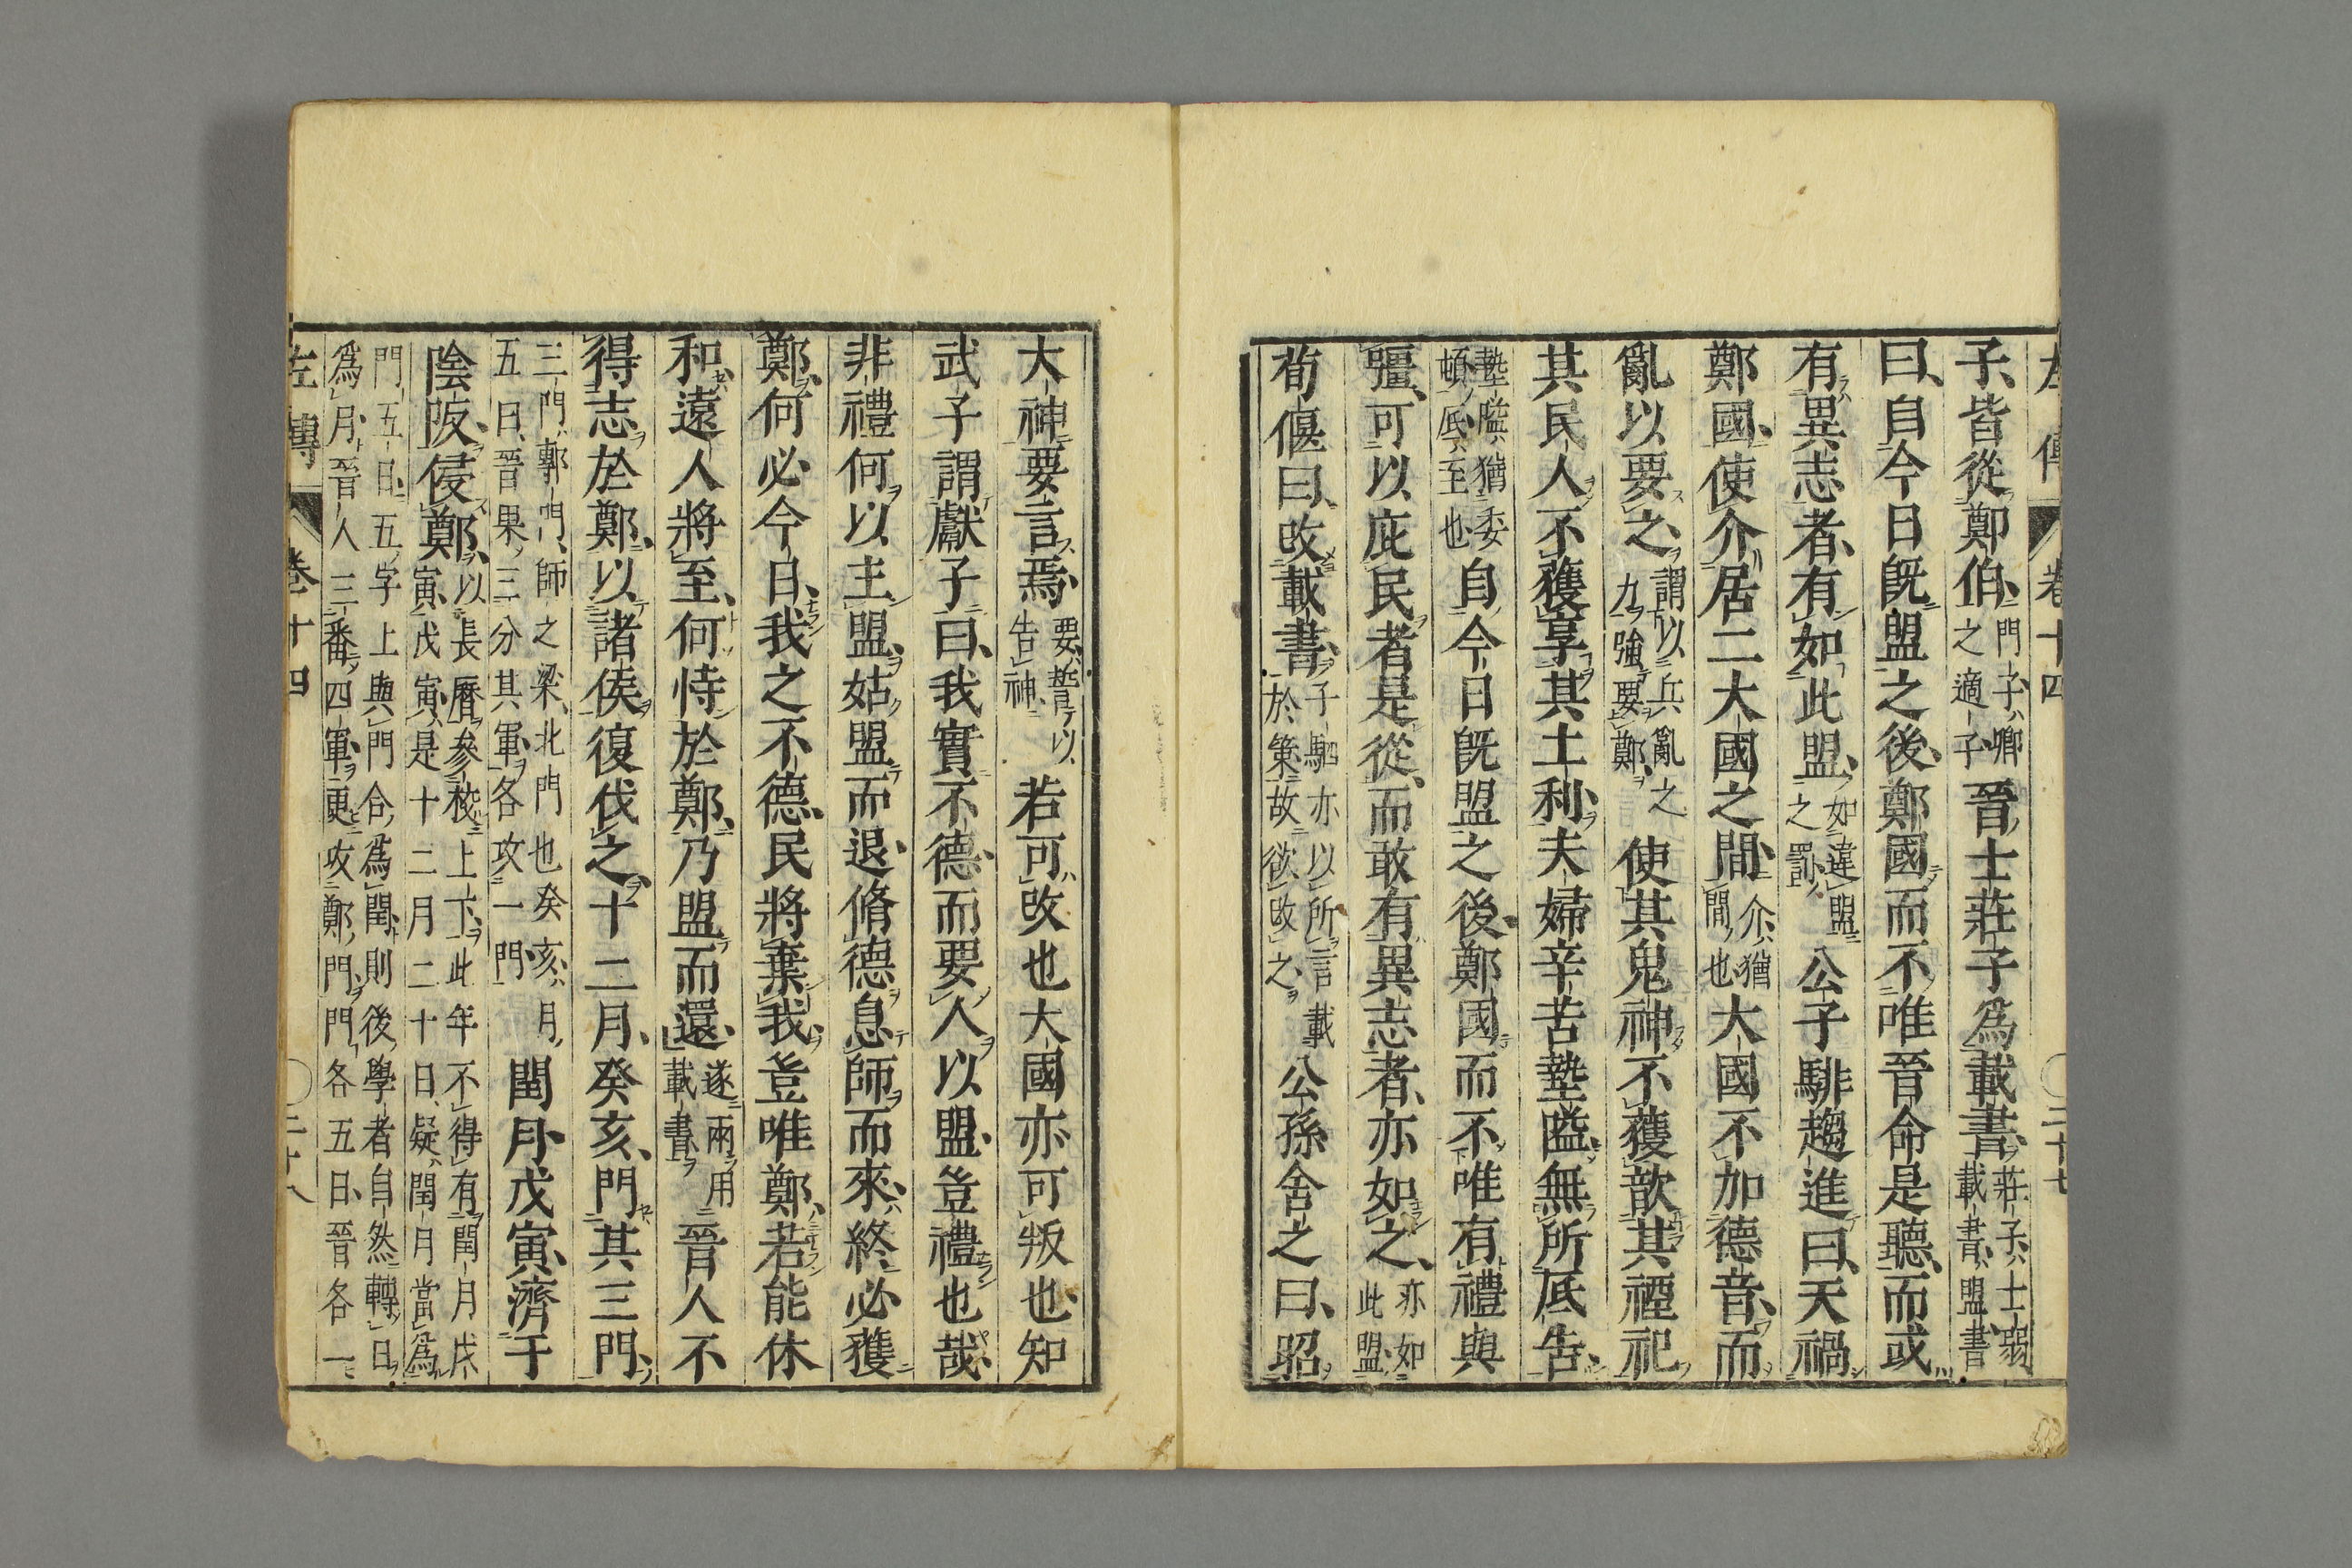 左傳 卷十四 二十七
子皆從鄭伯門子卿之適子晉士莊子爲載書莊子士弱載書盟書
曰自今日既盟之後鄭國而不唯晉命是聽而或
有異志者有如此盟如違盟之罰公子騑趨進曰天禍
鄭國使介居二大國之間介猶間也大國不加德音而
亂以要之謂以兵亂之力強要鄭使其鬼神不獲歆其禋祀
其民人不獲享其土利夫婦辛苦墊隘無所厎告
墊隘猶委頓厎至也自今日既盟之後鄭國而不唯有禮與
彊可以庇民者是從而敢有異志者亦如之亦如此盟
荀偃曰改載書子駟亦以所言載於策故欲改之公孫舍之曰昭
大神要言焉要誓以告神若可改也大國亦可叛也知
武子謂獻子曰我實不德而要人以盟豈禮也哉
非禮何以主盟姑盟而退脩德息師而來終必獲
鄭何必今日我之不德民將棄我豈唯鄭若能休
和遠人將至何恃於鄭乃盟而還遂兩用載書晉人不
得志於鄭以諸侯復伐之十二月癸亥門其三門
三門鄟門師之梁北門也癸亥月五日晉果三分其軍各攻一門閏月戊寅濟于
陰阪侵鄭以長曆參校上下此年不得有閏月戊寅戊寅是十二月二十日疑閏月當爲
門五日五字上與門合爲閏則後學者自然轉日爲月晉人三番四軍更攻鄭門門各五日晉各一
左傳 卷十四 二十八